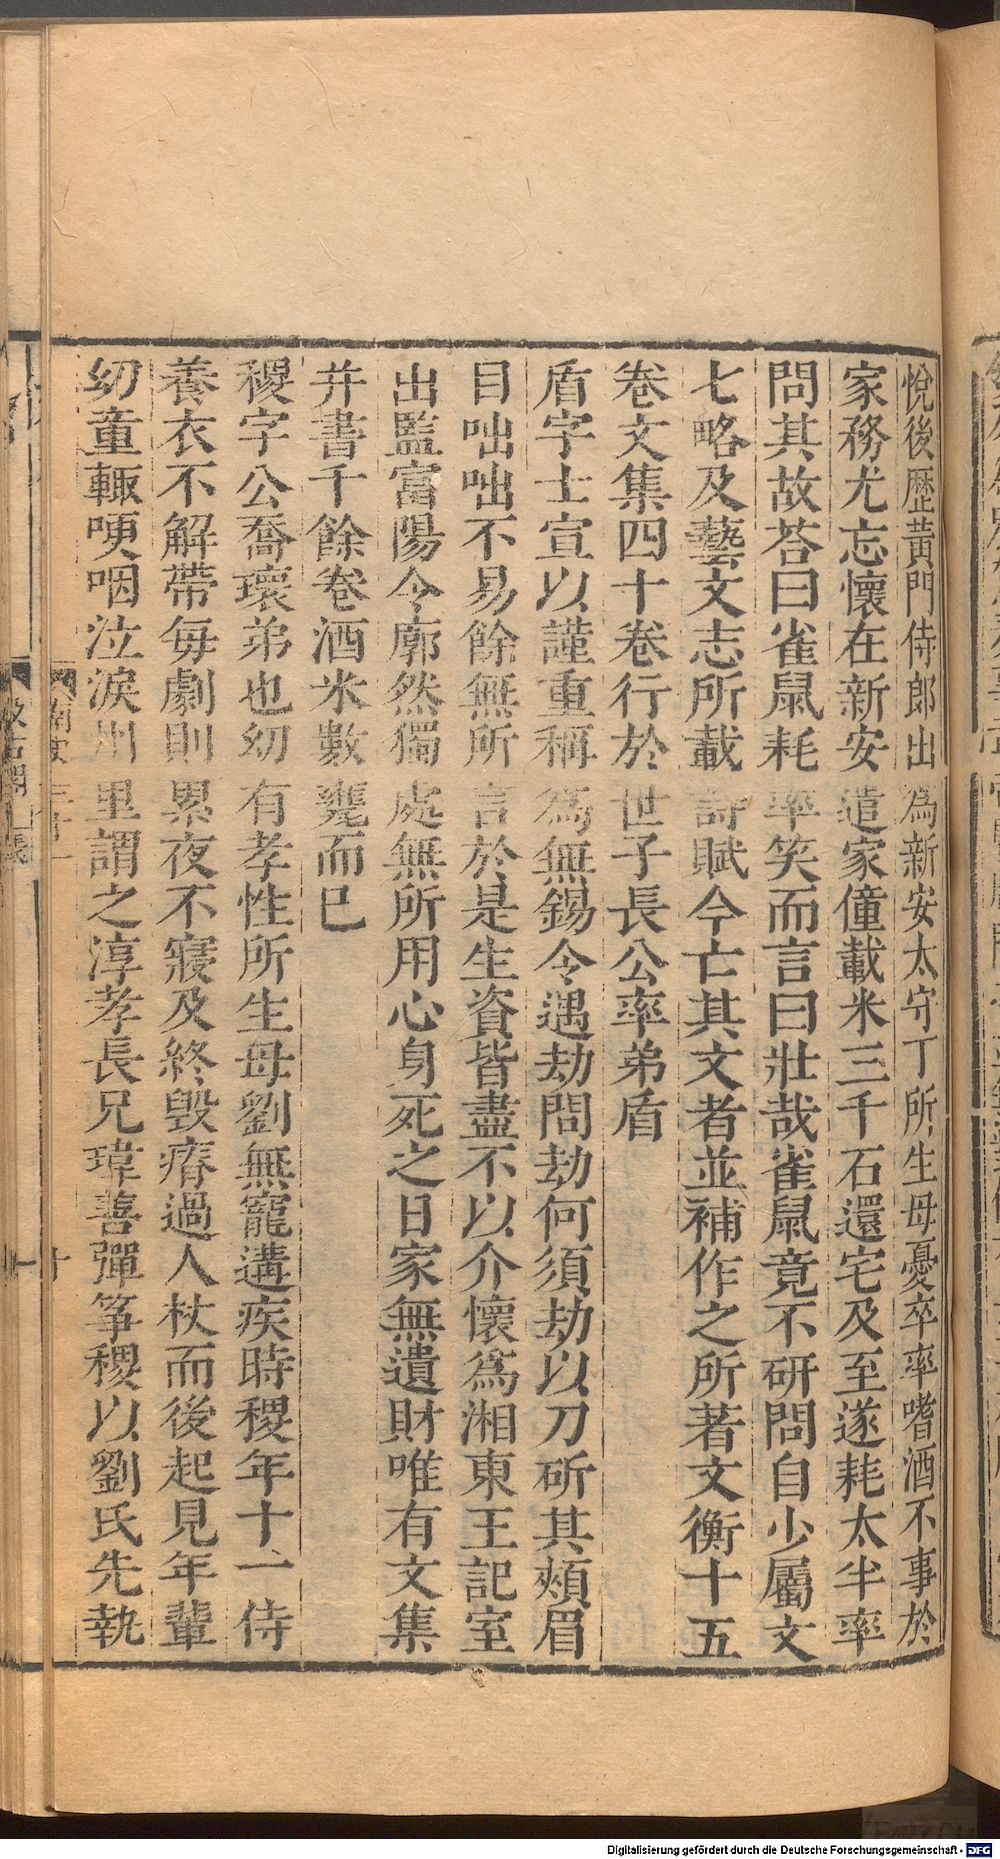 悅後歷黃門侍郎出為新安太守丁所生母憂卒率嗜酒不事於
家務尤忘懷在新安遣家僮載米三千石還宅及至遂耗太半率
問其故荅曰雀鼠耗率笑而言曰壯哉雀鼠竟不研問自少屬文
七略及藝文志所載詩賦今亡其文者並補作之所著文衡十五
卷文集四十卷行於世子長公率弟盾
盾字士宣以謹重稱爲無錫令遇劫問劫何須劫以刀斫其頰眉
目咄咄不易餘無所言於是生資皆盡不以介懷爲湘東王記室
出監富陽令廓然獨處無所用心身死之日家無遺財唯有文集
并書千餘卷酒米數甕而已
稷字公喬瓌弟也幼有孝性所生母劉無寵遘疾時稷年十一侍
養衣不解帶每劇則累夜不寢及終毀瘠過人杖而後起見年輩
幼童輒哽咽泣淚州里謂之淳孝長兄瑋善彈箏稷以劉氏先執
Digitalisierung gefördert durch die Deutsche Forschungsgemeinschaft - DFG